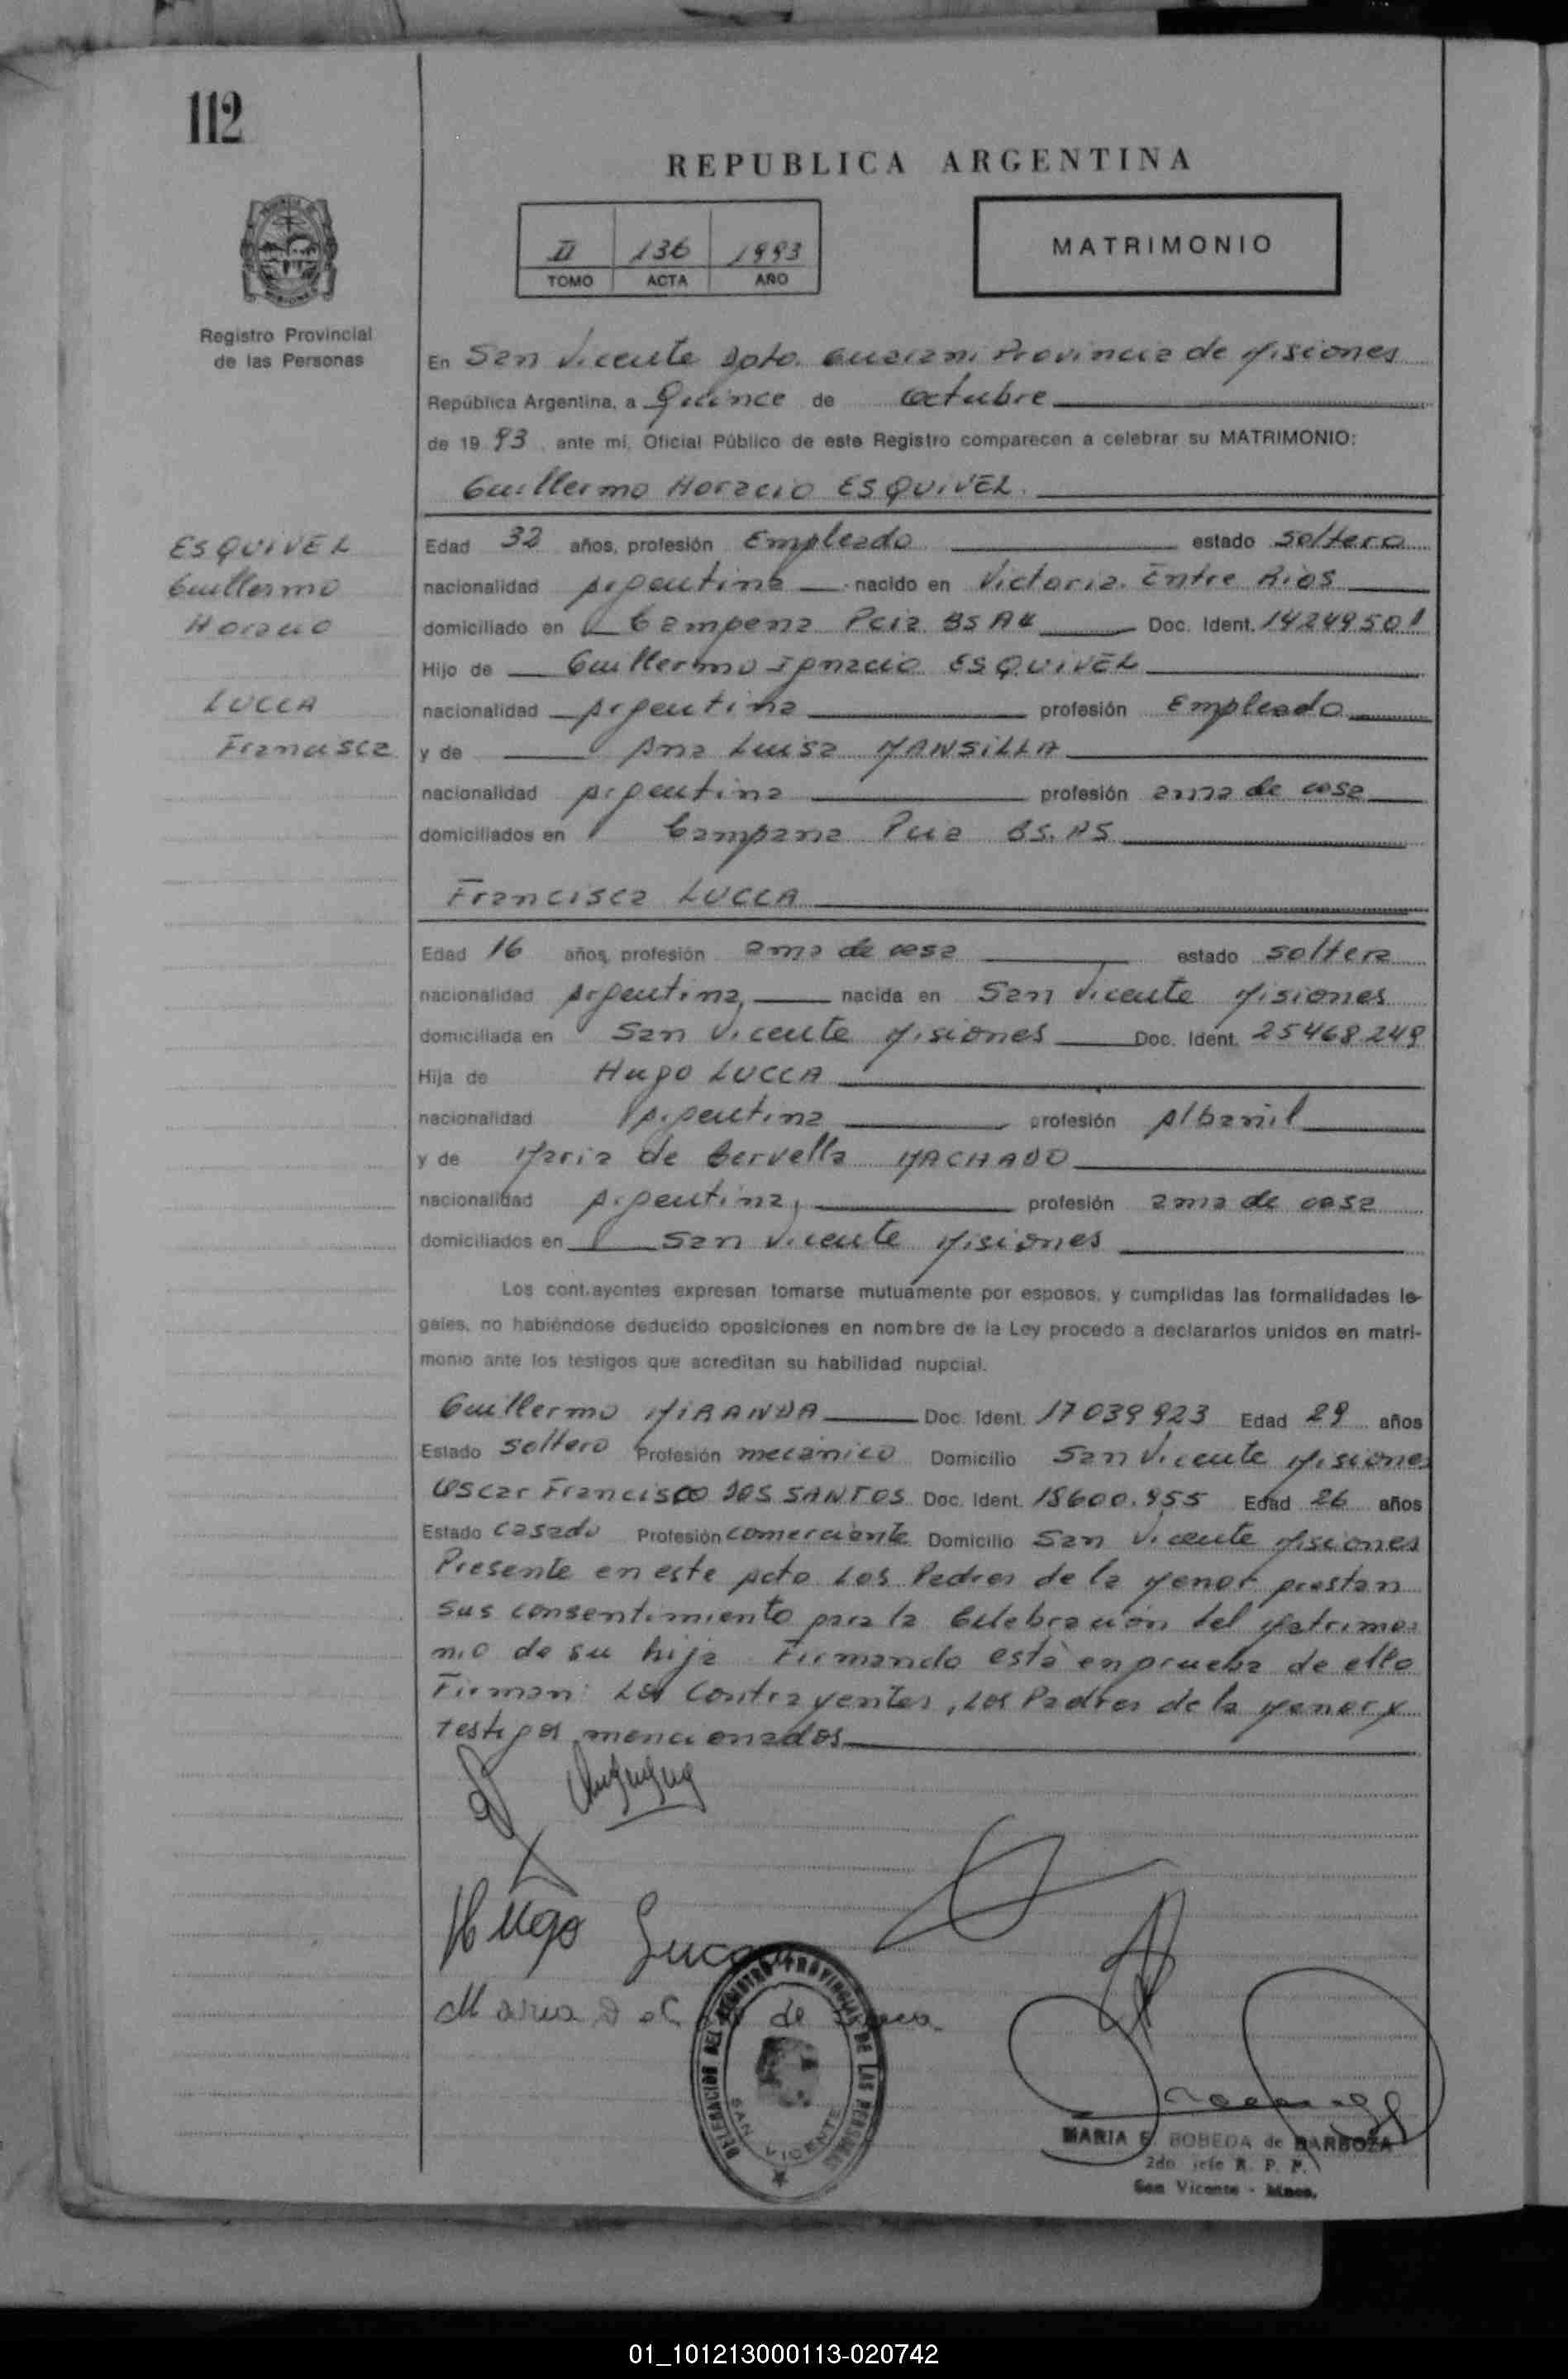 112
REPUBLICA ARGENTINA
II 136 1993
TOMO ACTA AÑO
MATRIMONIO
Registro Provincial
de las Personas
En San Vicente Dpto. Guarani Provincia de Misiones
República Argentina, a Quince de octubre
de 19 93, ante mí, Oficial Público de este Registro comparecen a celebrar su MATRIMONIO:
Guillermo Horacio ESQUIVEL.
ESQUIVEL
Guillermo
Horacio
LUCCA
Francisca
Edad 32 años, profesión Empleado estado soltero
nacionalidad Argentina nacido en Victoria. Entre Rios
domiciliado en Campana Pcia BS AS Doc. Ident. 14249501
Hijo de Guillermo Ignacio ESQUIVEL
nacionalidad Argentina profesión Empleado
y de Ana Luisa MANSILLA
nacionalidad Argentina profesión ama de casa
domiciliados en Campana Pcia BS. AS
Francisca LUCCA
Edad 16 años, profesión ama de casa estado soltera
nacionalidad Argentina, nacida en San Vicente Misiones
domiciliada en San Vicente Misiones Doc. Ident. 25468.249
Hija de Hugo LUCCA
nacionalidad Argentina profesión Albañil
y de Maria de Cervella MACHADO
nacionalidad Argentina, profesión ama de casa
domiciliados en San Vicente Misiones
Los contrayentes expresan tomarse mutuamente por esposos, y cumplidas las formalidades le-
gales, no habiéndose deducido oposiciones en nombre de la Ley procedo a declararlos unidos en matri-
monio ante los testigos que acreditan su habilidad nupcial.
Guillermo MIRANDA Doc. Ident. 17039923 Edad 29 años
Estado soltero Profesión mecánico Domicilio San Vicente Misiones
Oscar Francisco DOS SANTOS Doc. Ident. 18600.955 Edad 26 años
Estado casado Profesión comerciante Domicilio San Vicente Misiones
Presente en este Acto Los Padres de la Menor prestan
sus consentimiento para la Celebración del Matrimo-
nio de su hija Firmando está en prueba de ello
Firman: Los Contrayentes, Los Padres de la Menor y
testigos mencionados
Hugo Lucca
Maria de
DELEGACION DEL REGISTRO PROVINCIAL DE LAS PERSONAS
SAN VICENTE
MARIA E. BOBEDA de BARBOZA
2do. jefe R. P. P.
San Vicente - Mnes.
01_101213000113-020742